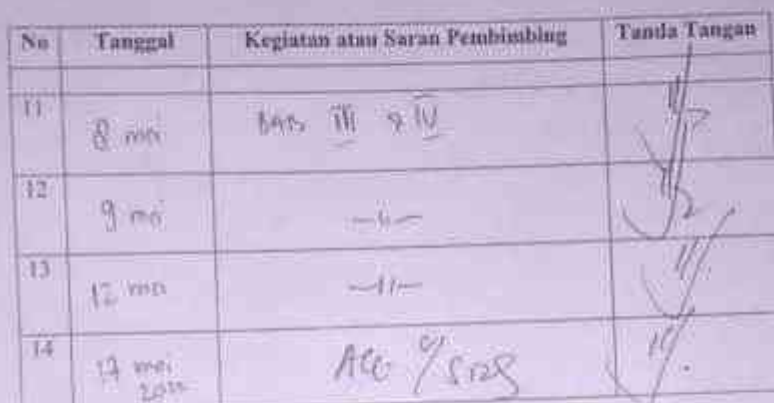 No Tanggal Kegiatan atau Saran Pembimbing Tanda Tangan
11 8 mei BAB III & IV
12 9 mei —〃—
13 12 mei —〃—
14 17 mei ACC